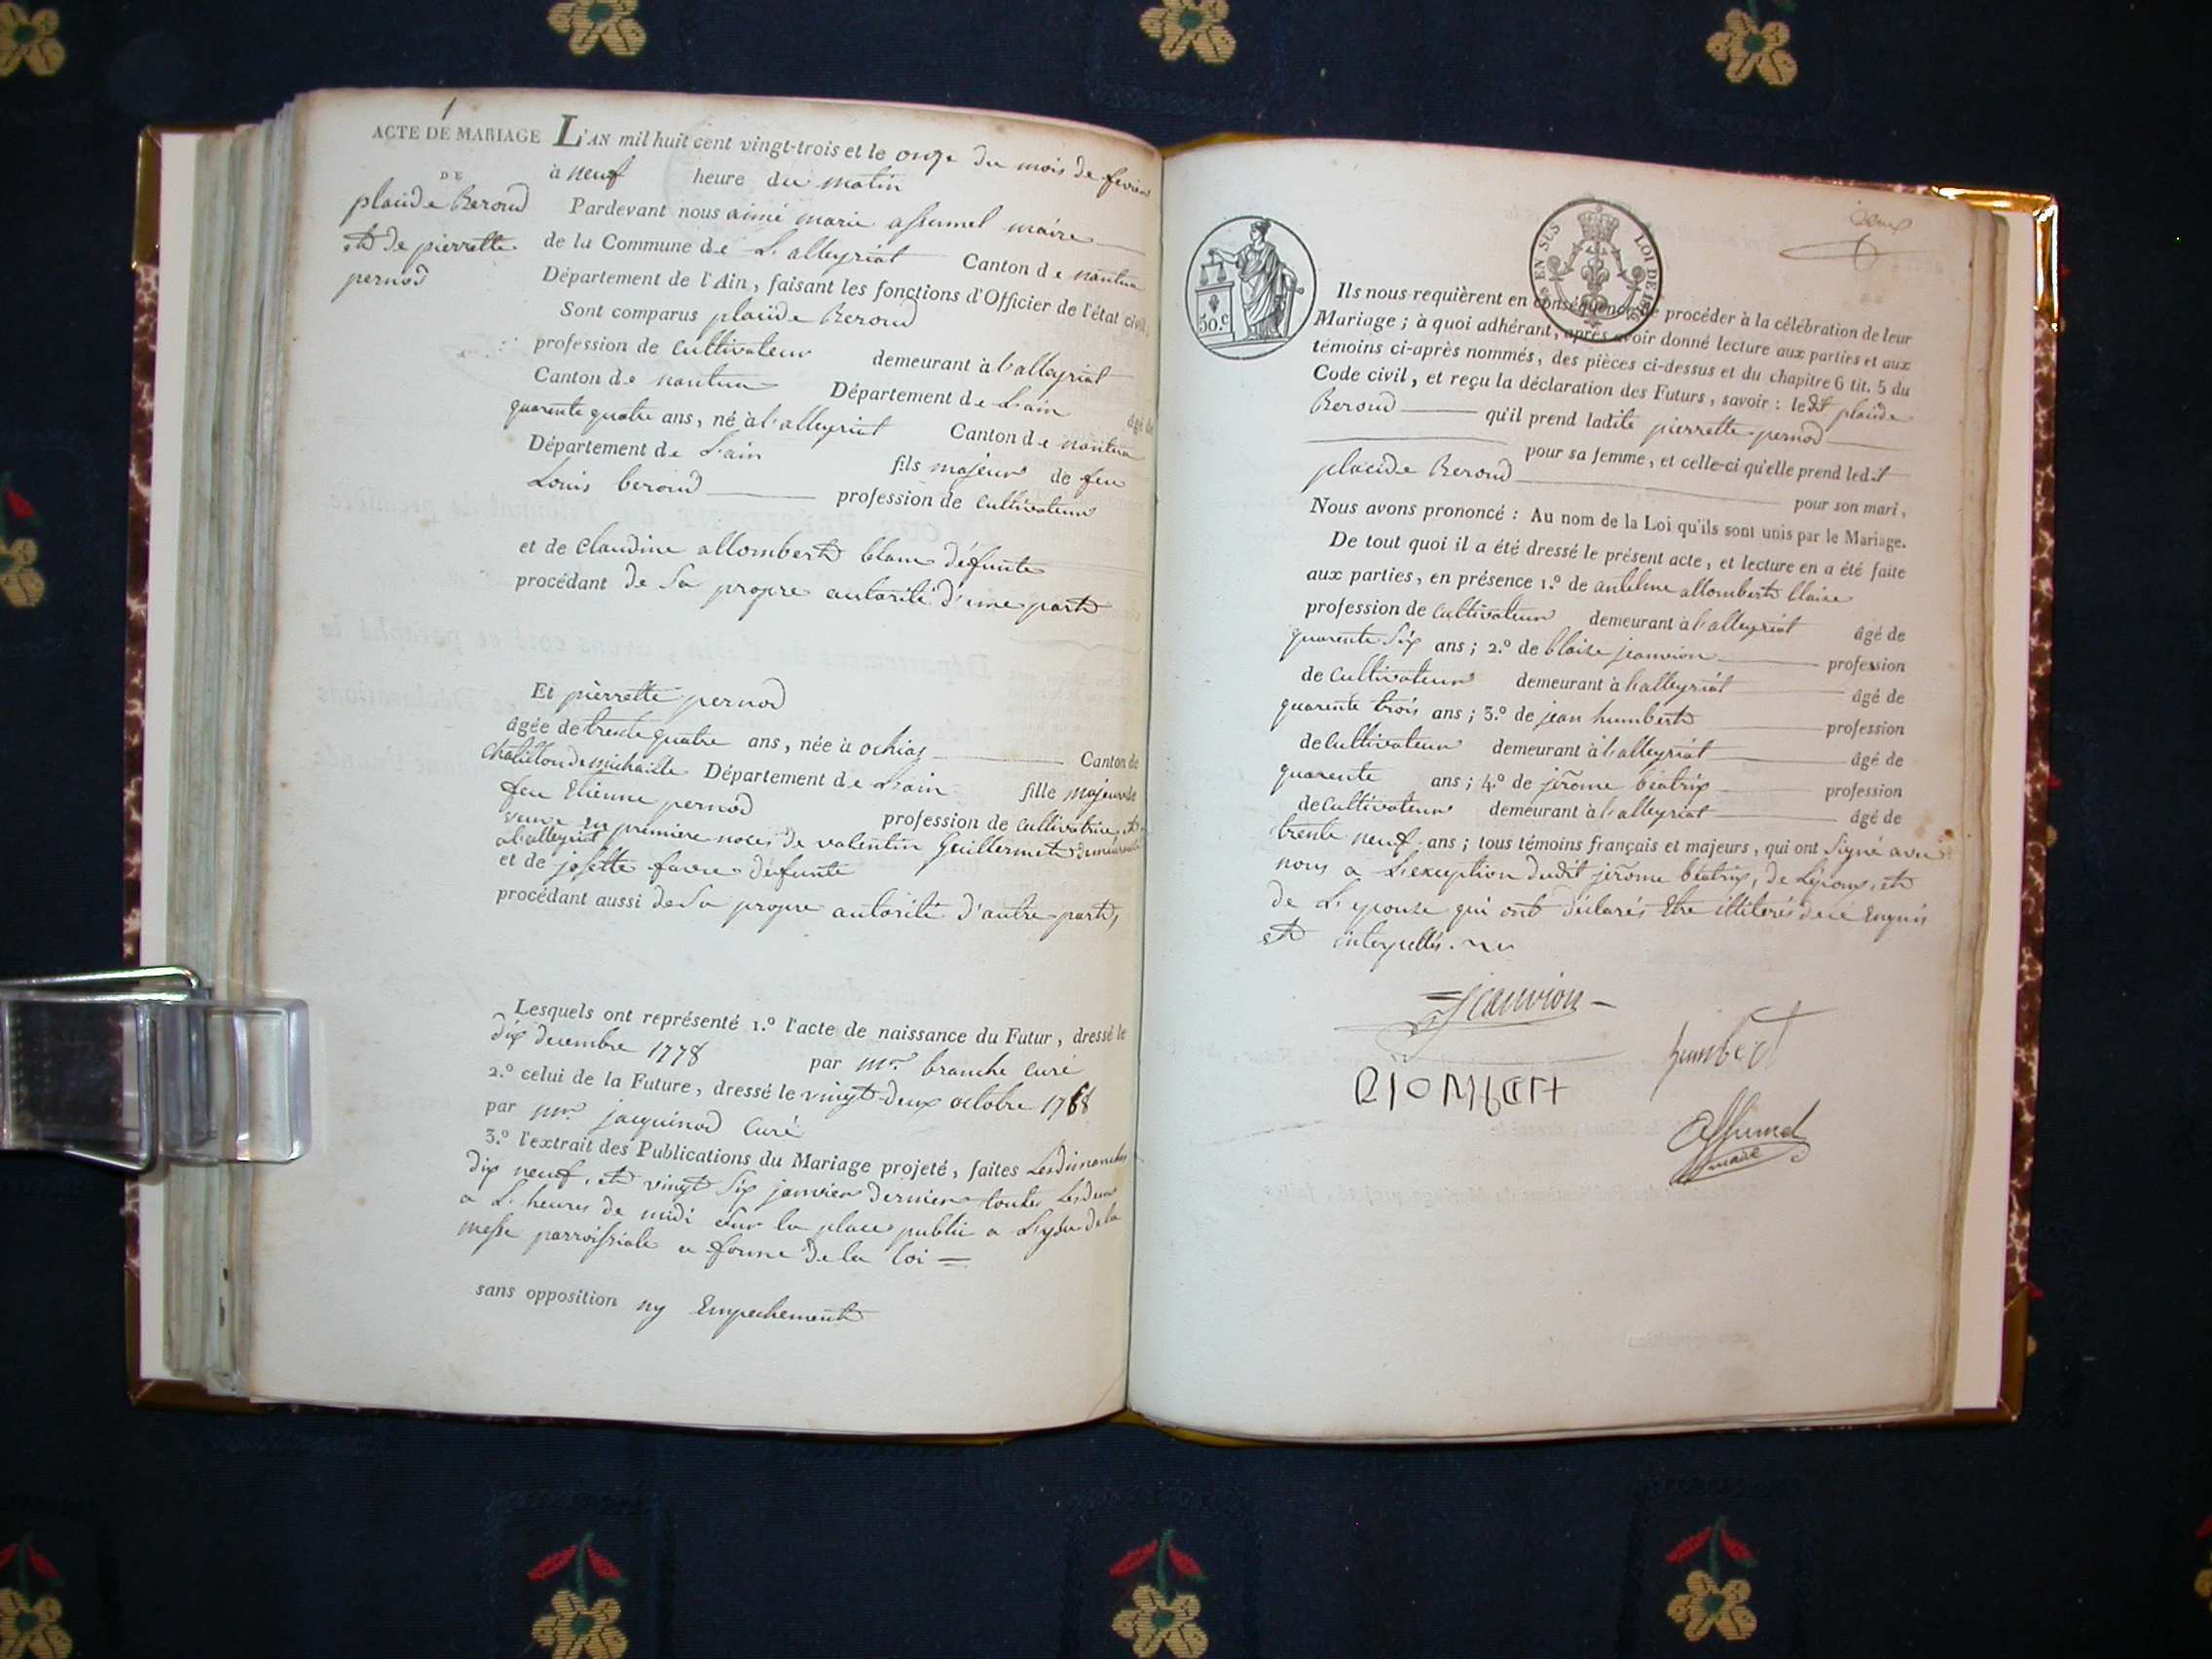 1
ACTE DE MARIAGE
DE
placide Beroud
et de pierrette
pernod
L'AN mil huit cent vingt-trois et le onze du mois de fevrier
à neuf heure du matin
Pardevant nous aimé marie assumel maire
de la Commune de L'alleyriat Canton de nantua
Département de l'Ain, faisant les fonctions d'Officier de l'état civil,
Sont comparus placide Beroud
profession de cultivateur demeurant à l'alleyriat
Canton de nantua Département de L'ain âgé de
quarente quatre ans, né à l'alleyriat Canton de nantua
Département de L'ain fils majeur de feu
Louis beroud profession de cultivateur
et de Claudine allombert blanc défunte
procédant de Sa propre autorité d'une part
Et pierrette pernod
âgée de trente quatre ans, née à ochiaz Canton de
chatillon de michaille Département de L'ain fille majeure de
feu Etienne pernod profession de cultivatrice, et
veuve en premiere noces de valentin Guillermet demeurante
a l'alleyriat
et de josette favre défunte
procédant aussi de Sa propre autorité d'autre part,
Lesquels ont représenté 1.º l'acte de naissance du Futur, dressé le
dix decembre 1778 par mr. branche curé
2.º celui de la Future, dressé le vingt deux octobre 1788
par mr. jacquinod curé
3.º l'extrait des Publications du Mariage projeté, faites Les dimanches
dix neuf, et vingt Six janvier dernier toutes Les deux
a L'heures de midi Sur la place public a L'yssu de la
messe parroissiale a forme de la loi =
sans opposition ny Empechement
50.c
EN SUS LOI DE
deux
Ils nous requièrent en conséquence de procéder à la célébration de leur
Mariage; à quoi adhérant, après avoir donné lecture aux parties et aux
témoins ci-après nommés, des pièces ci-dessus et du chapitre 6 tit. 5 du
Code civil, et reçu la déclaration des Futurs, savoir : ledit placide
Beroud qu'il prend ladite pierrette pernod
pour sa femme, et celle-ci qu'elle prend ledit
placide Beroud pour son mari,
Nous avons prononcé : Au nom de la Loi qu'ils sont unis par le Mariage.
De tout quoi il a été dressé le présent acte, et lecture en a été faite
aux parties, en présence 1.º de antelme allombert blaise
profession de cultivateur demeurant à l'alleyriat âgé de
quarente Six ans; 2.º de blaise jeanvion profession
de cultivateur demeurant à l'alleyriat âgé de
quarente trois ans; 3.º de jean humbert profession
de cultivateur demeurant à l'alleyriat âgé de
quarente ans; 4.º de jerome béatrix profession
de cultivateur demeurant à l'alleyriat âgé de
trente neuf ans; tous témoins français et majeurs, qui ont Signé avec
nous a L'exception dudit jerome béatrix, de L'epoux, et
de L'epouse qui ont déclarés Etre illiterés de ce Enquis
et interpellés.
Jeanvion
humbert
assumel
maire